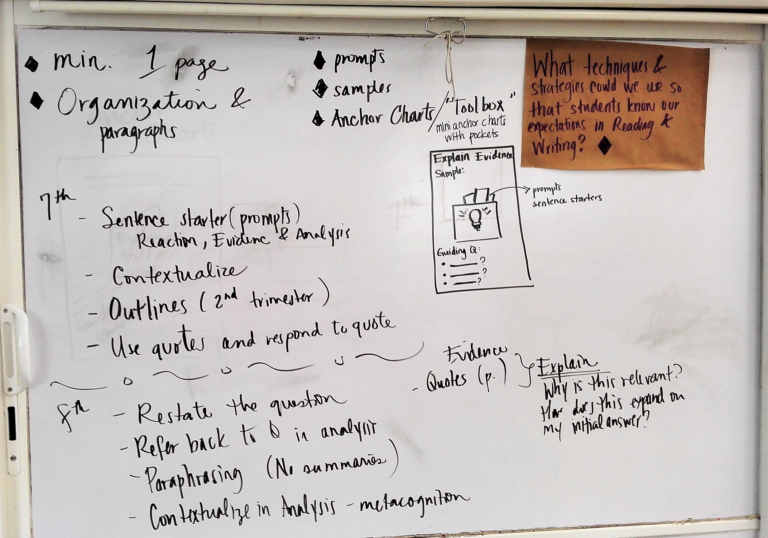 min. 1 page
Organization &
paragraphs
prompts
samples
Anchor Charts / "Toolbox"
mini anchor charts
with pockets
What techniques &
strategies could we use so
that students know our
expectations in Reading &
Writing?
Explain Evidence
Sample:
prompts
sentence starters
Guiding Q:
?
?
?
7th
- Sentence starter (prompts)
Reaction, Evidenc & Analysis
- Contextualize
- Outlines (2nd trimester)
- Use quotes and respond to quote
8th
- Restate the question
- Refer back to Q in analysis
- Paraphrasing (No summaries)
- Contextualize in Analysis - metacogniton
Evidence
- Quotes (p. )
Explain
Why is this relevant?
How does this expand on
my initial answer?